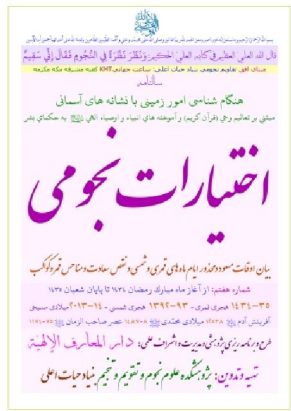 قال الله العلي العظيم في كتابه العلي الحكيم: وَنَظَرَ نَظْرَةً فِي النُّجُومِ فَقَالَ إِنِّي سَقِيمٌ
مبنای افق تقاویم نجومی بنیاد حیات اعلی: ساعت جهانی KMT کعبه مشرفه مکه مکرمه
سالنامه
هنگام شناسی امور زمینی با نشانه های آسمانی
مبتنی بر تعالیم وحی (قرآن کریم) و آموخته های انبیاء و اوصیاء الهی به حکمای بشر
اختیارات نجومی
بیان اوقات مسعود و محذور ایام ماه های قمری و شمسی و نقص سعادت و مناحس قمر و کواکب
شماره هفتم: از آغاز ماه مبارک رمضان ۱۴۳۴ تا پایان شعبان ۱۴۳۵
۱۴۳۴-۳۵ هجری قمری - ۹۳-۱۳۹۲ هجری شمسی - ۱۴-۲۰۱۳ میلادی مسیحی
طرح و برنامه ریزی پژوهشی و مدیریت و اشراف علمی: دار المعارف الإلهیة
تهیه و تدوین: پژوهشکده علوم نجوم و تقویم و تنجیم بنیاد حیات اعلی